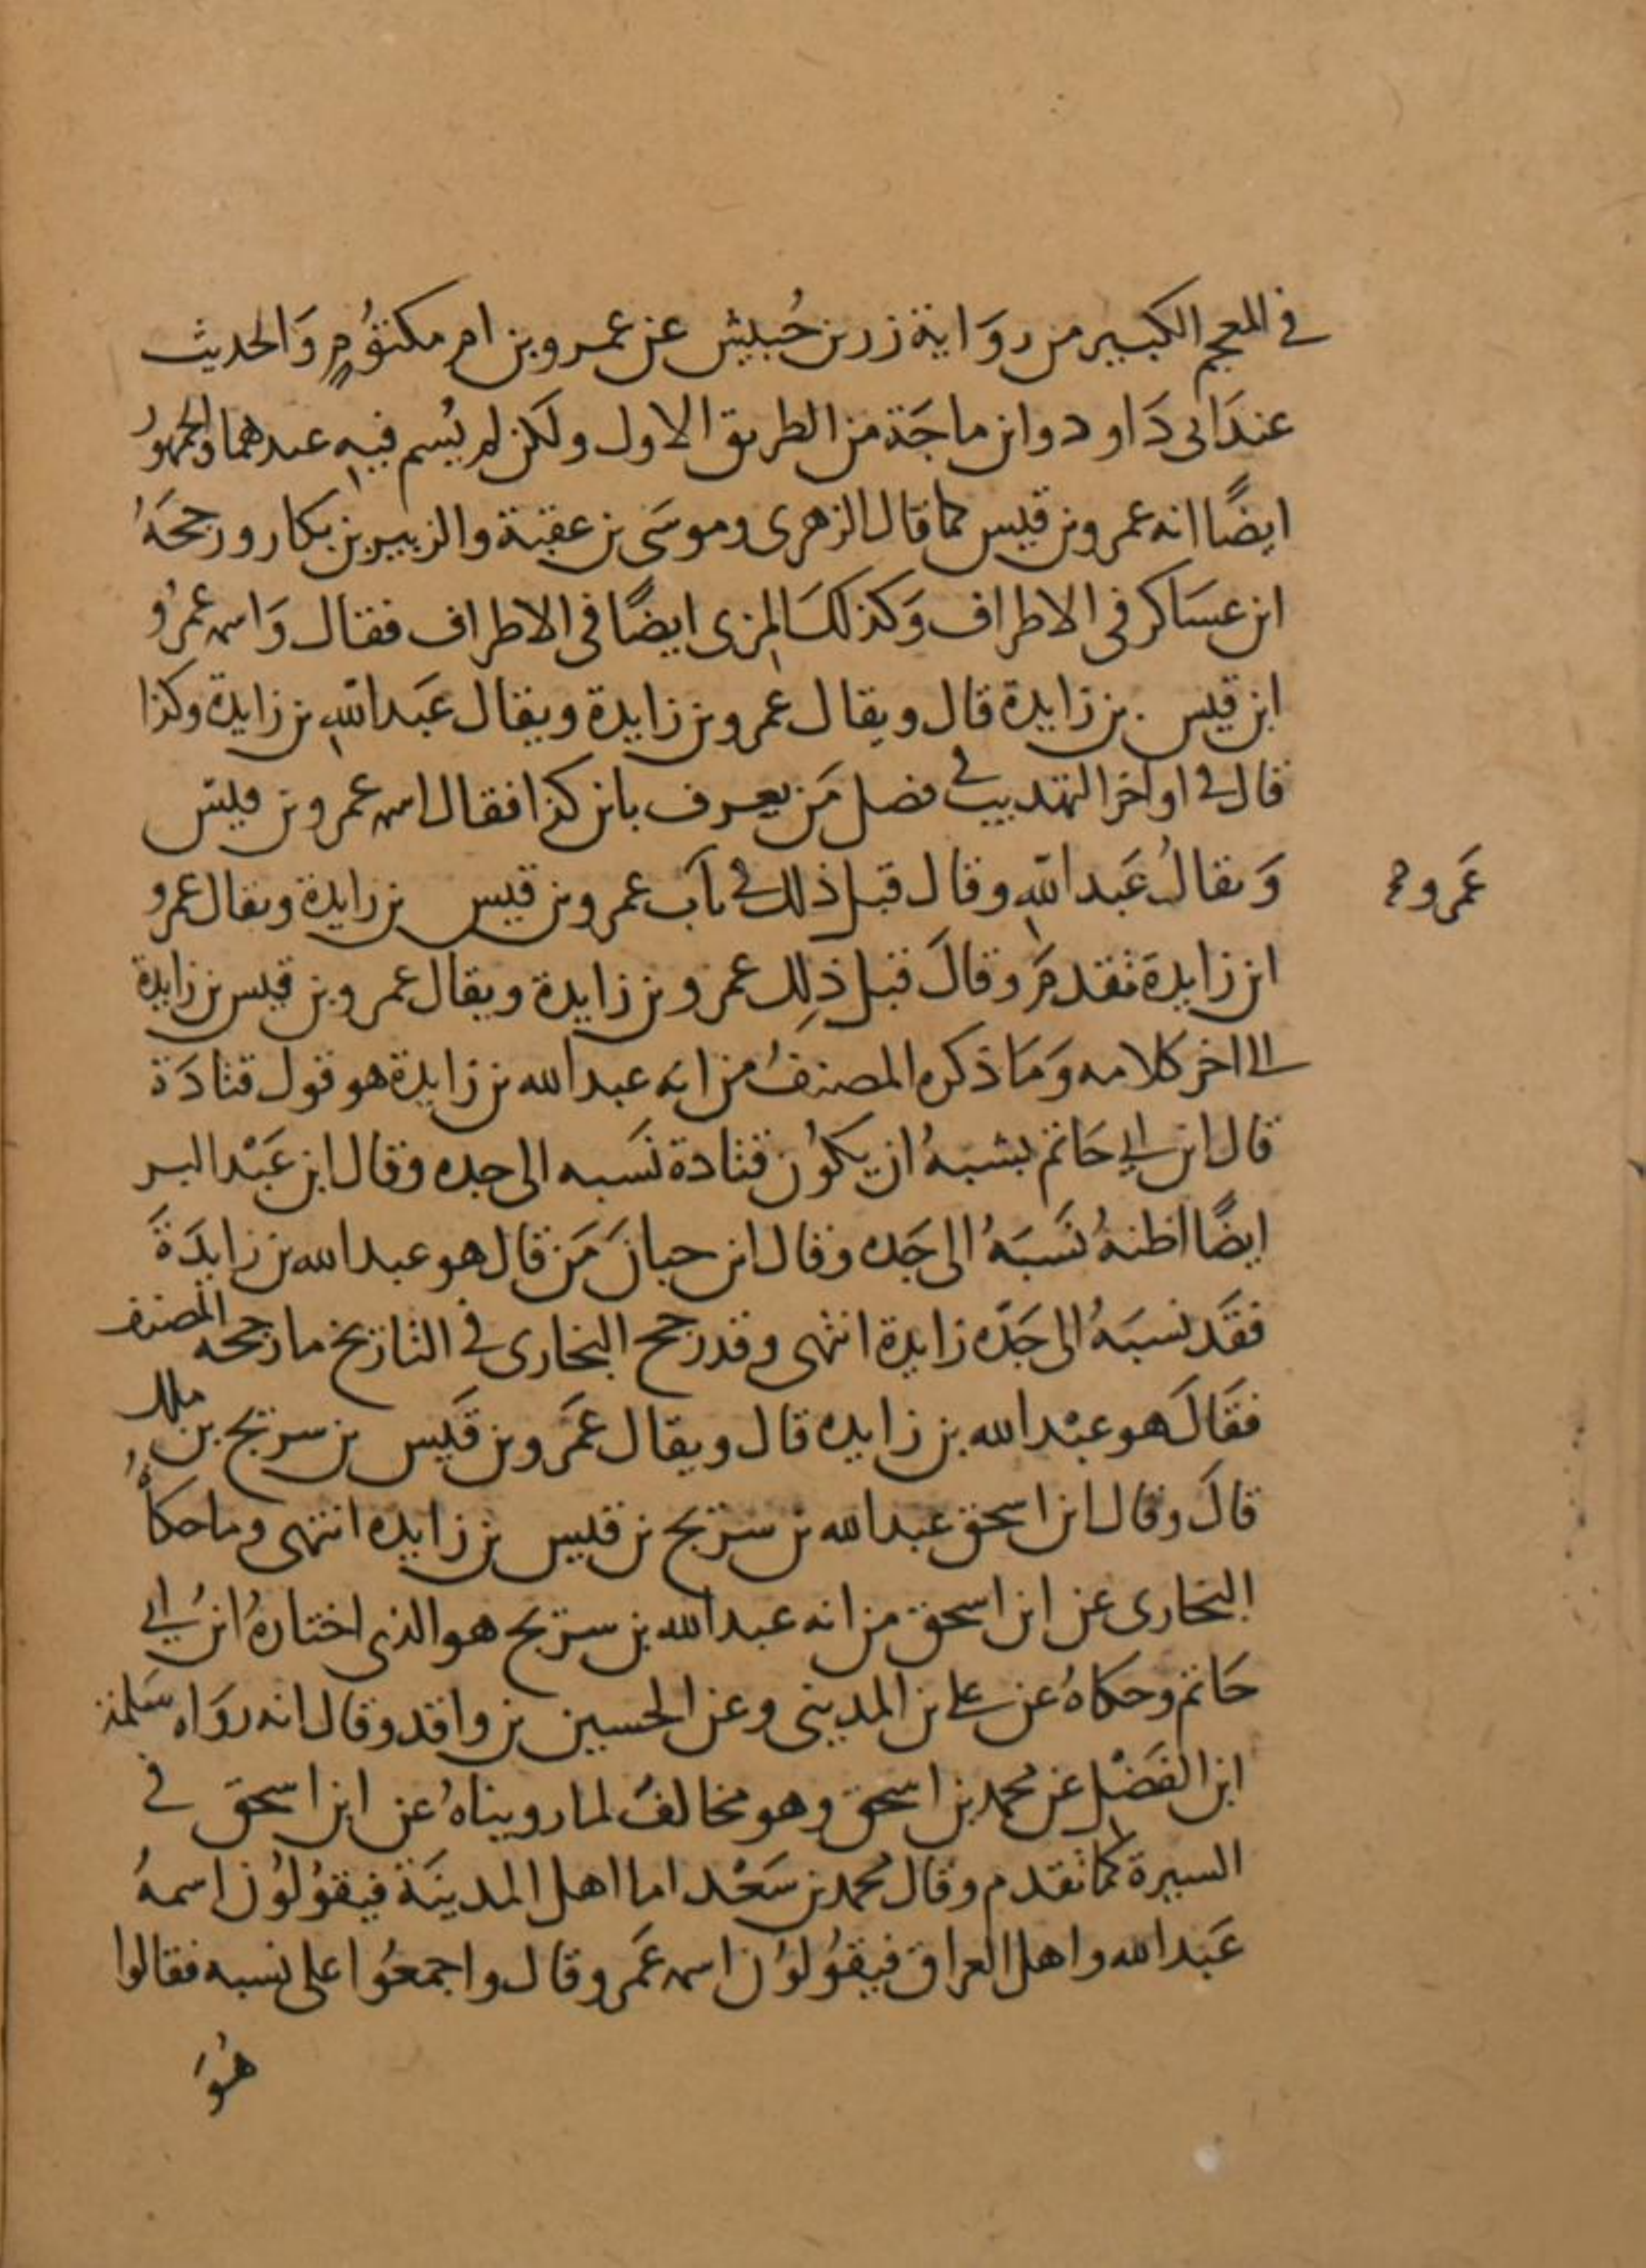 في المعجم الكبير من روَاية زر بن حُبيش عن عمرو بن ام مكتوُمٍ وَالحديث
عندَ ابى دَاود وابن ماجَة من الطريق الاول ولكن لم يُسم فيهِ عندهما والجمهوُر
ايضًا انه عمرو بن قيس كما قال الزهرى وموسَى بن عقبة والزبير بن بكار ورجحَهُ
ابن عسَاكر فى الاطراف وَكذلكَ المزى ايضًا فى الاطراف فقال وَاسمه عمرُو
ابن قيس . بن زايدة قال ويقال عمرو بن زايدة ويقال عَبد اللّهِ بن زايدة وكذا
قال في اواخر التهذيب في فصل مَن يعرف بابن كذا فقال اسمه عمرو بن قيس
وَيقالُ عَبد اللّهِ وقال قبل ذلك في باَب عمرو بن قيس بن زايدة ويقال عمرو
عَمرو صح
ابن زايدة تقدمَ وقالَ قبل ذلِك عمرو بن زايدة ويقال عمرو بن قيس بن زايدة
الى اخر كلامه وَمَا ذكره المصنفُ من انه عبد الله بن زايدة هو قول قتادَة
قال ابن ابي حَاتم يشبهُ ان يكوُن قتادة نَسبه الى جده وقال ابن عَبْد البر
ايضًا اظنهُ نَسَبَهُ الى جَده وقال ابن حبانَ مَن قال هو عبد الله بن زايدَةَ
فقَد نسبَهُ الى جَدّه زايدة انتهى وقد رجح البخارى في التاريخ ما رجحه المصنف
فقَالَ هو عبْد الله بن زايده قال ويقال عَمرو بن قَيس بن سريج بن ملك
قالَ وقال ابن اسحق عبد الله بن سريج بن قيس بن زايده انتهى وما حكاهُ
البخارى عن ابن اسحق من انه عبد الله بن سريج هو الذى اختارهُ ابنُ ابي
حَاتم وحكاهُ عن علي بن المدينى وعن الحسين بن واقد وقال انه روَاه سَلمة
ابن الفَضْل عن محمد بن اسحق وهو مخالفٌ لما رويناهُ عن ابن اسحقَ في
السيرة كما تقدم وقال محمد بن سَعْد اما اهل المدينَة فيقوُلوُن اسمهُ
عَبد الله واهل العراق فيقوُلوُن اسمه عَمرو وقال واجمعُوا على نسبه فقالوا
هُوَ